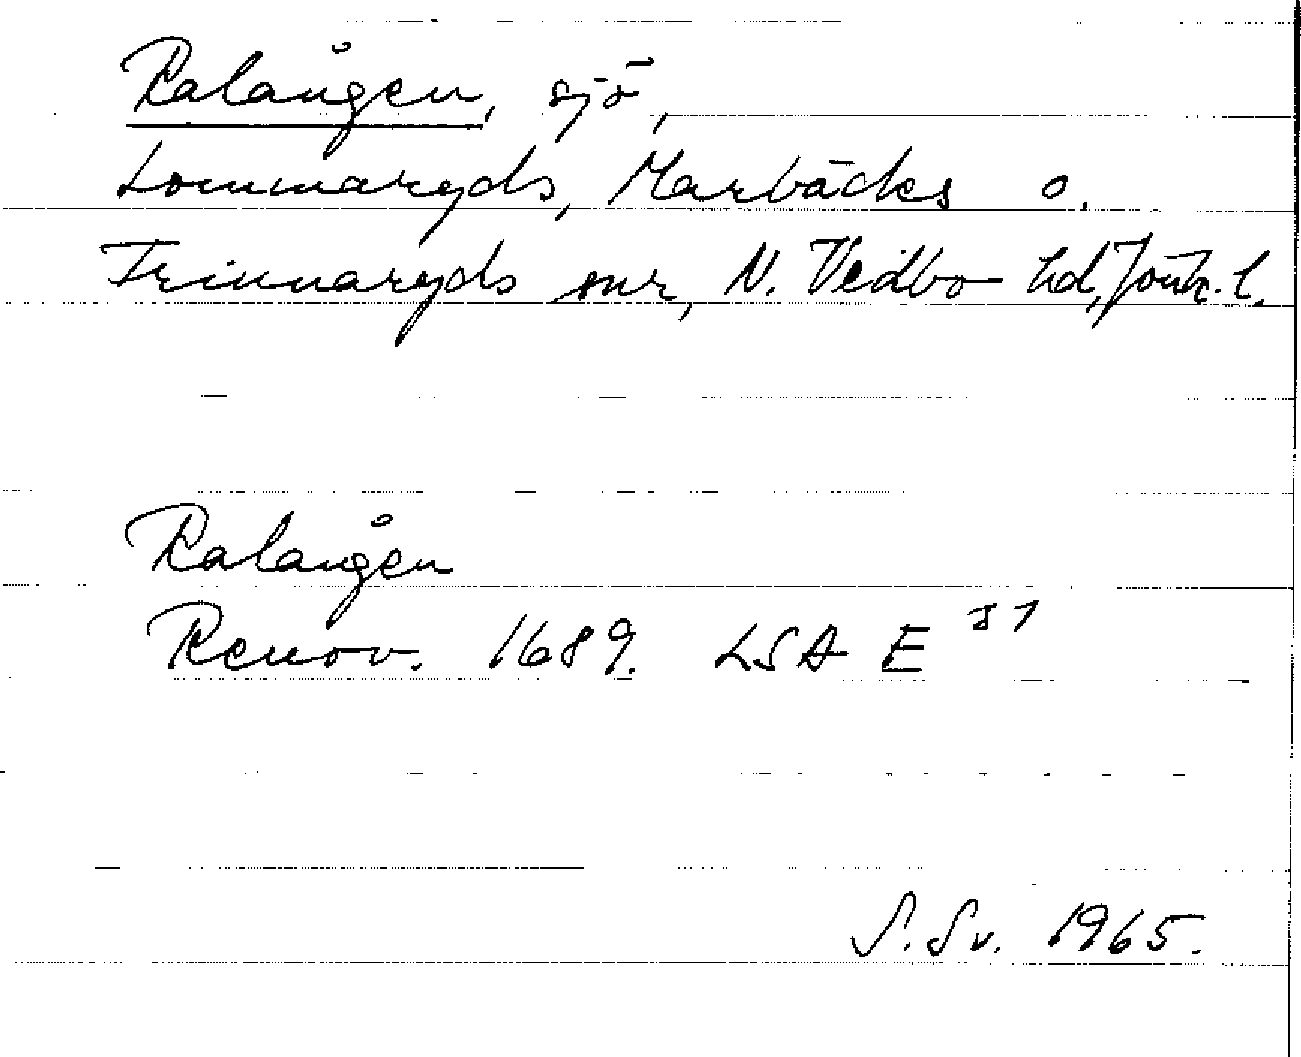 Ralången, sjö,
Lommaryds, Marbäcks o.
Frinnaryds snr, N. Vedbo hd, Jönk. l.
Ralången
Renov. 1689. LSA E 51
S. Sv. 1965.